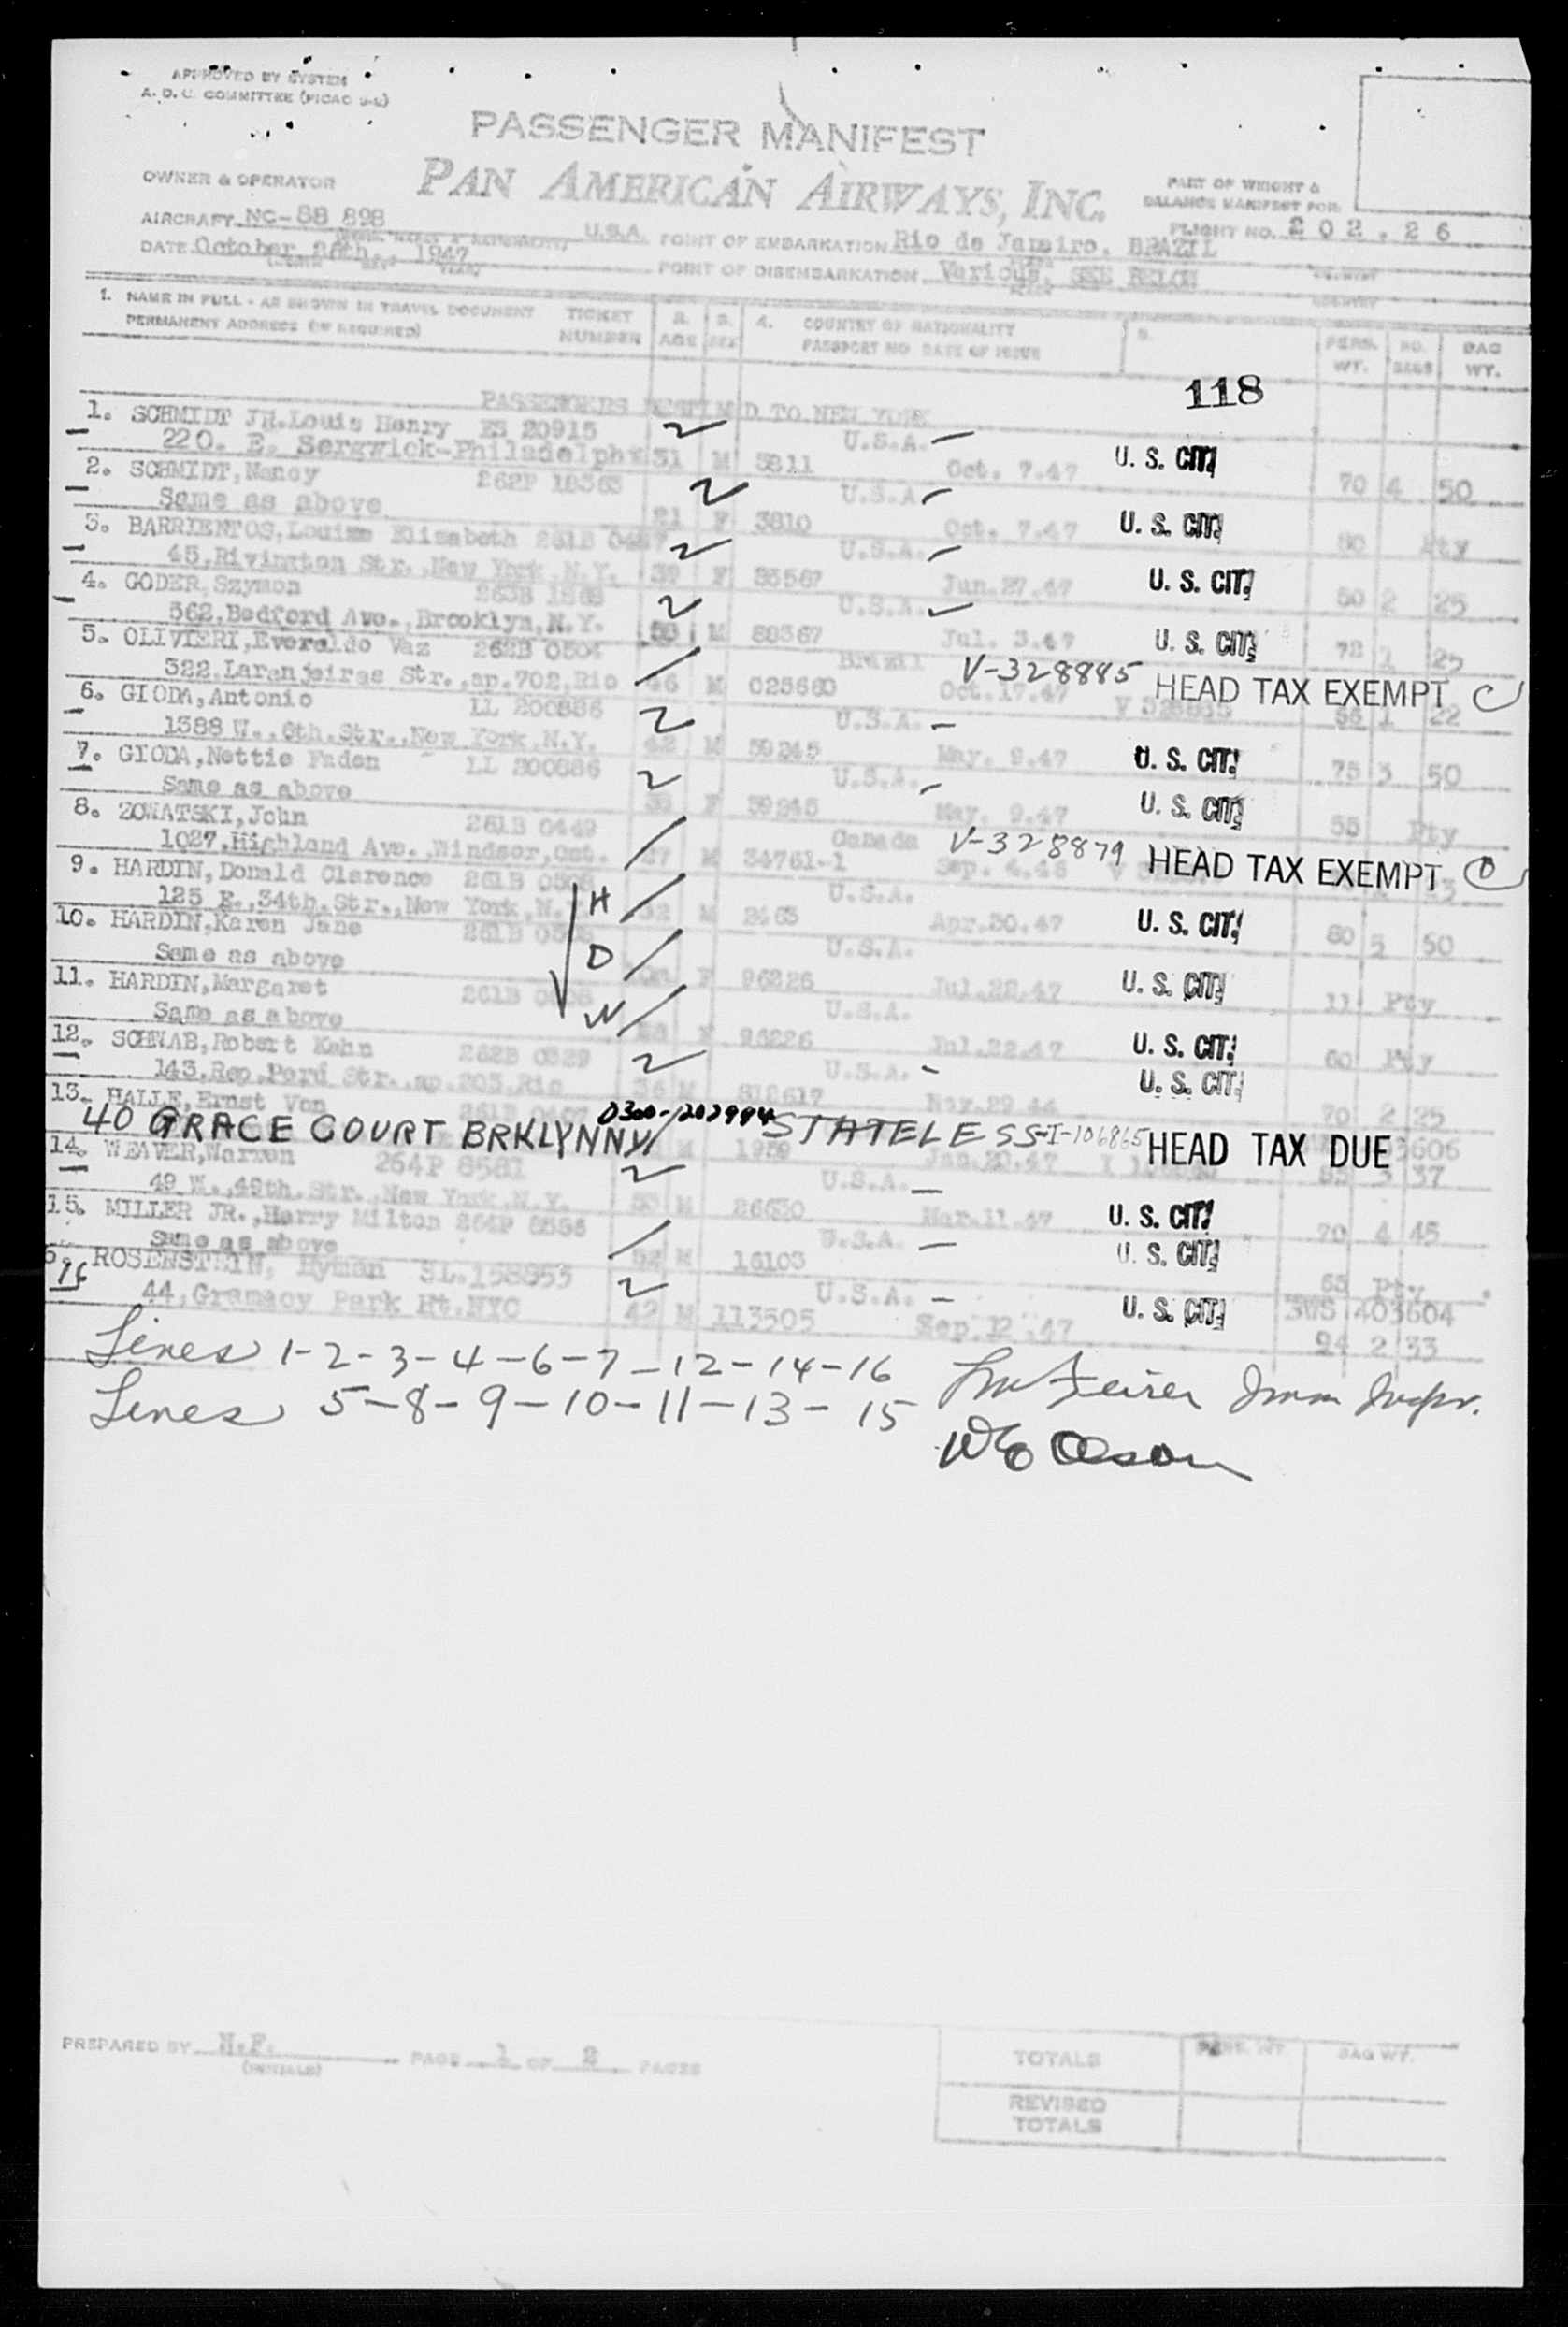 APPROVED BY SYSTEM
A. D. C. COMMITTEE (PICAO
PASSENGER MANIFEST
OWNER & OPERATOR
PAN AMERICAN AIRWAYS, INC.
PART OF WEIGHT &
BALANCE MANIFEST FOR
AIRCRAFT NC-88 898 U.S.A. POINT OF EMBARKATION Rio de Janeiro, BRAZIL FLIGHT NO. 202.26
DATE October 1947 POINT OF DISEMBARKATION Various, SEE BELOW
1. NAME IN FULL - AS SHOWN IN TRAVEL DOCUMENT TICKET 2. 3. 4. COUNTRY OF NATIONALITY 5. PERS. NO. BAG
PERMANENT ADDRESS (IF REQUIRED) NUMBER AGE SEX PASSPORT NO DATE OF ISSUE WT. BAGS WT.
118
PASSENGERS DESTINED TO NEW YORK
1. SCHMIDT JR.Louis Henry ES 20915 U.S.A.
220. E. Sergwick-Philadelphi 31 M 3811 Oct. 7.47 U. S. CIT. 70 4 50
2. SCHMIDT,Nancy 262P 18363 U.S.A
Same as above 21 F 3810 Oct. 7.47 U. S. CIT. Pty
3. BARRIENTOS,Louise Elizabeth 261B U.S.A.
45,Rivington Str.,New York,N.Y. F 35567 Jun.27.47 U. S. CIT. 50 2 25
4. GODER,Szymon 263B U.S.A.
562,Bedford Ave.,Brooklyn,N.Y. M 88367 Jul. 3.47 U. S. CIT. 72 1 25
5. OLIVIERI,Everaldo Vaz 262B 0504 Brazil V-328885
322,Laranjeiras Str.,ap.702,Rio 46 M 025680 Oct.17.47 V 328885 HEAD TAX EXEMPT 1 22
6. GIODA,Antonio LL 200886 U.S.A.
1388 W.,6th.Str.,New York,N.Y. 42 M 59245 May. 9.47 U. S. CIT. 75 3 50
7. GIODA,Nettie Faden LL 200886 U.S.A.
Same as above F 59245 May. 9.47 U. S. CIT. 55 Pty
8. ZOWATSKI,John 261B 0449 Canada V-328879
1027,Highland Ave.,Windsor,Ont. 27 M 34761-1 Sep. 4.46 HEAD TAX EXEMPT
9. HARDIN,Donald Clarence 261B U.S.A.
125 E.,34th.Str.,New York,N. H 32 M 2463 Apr.30.47 U. S. CIT. 80 5 50
10. HARDIN,Karen Jane 261B U.S.A.
Same as above D F 96226 Jul.22.47 U. S. CIT. 11 Pty
11. HARDIN,Margaret 261B U.S.A.
Same as above W F 96226 Jul.22.47 U. S. CIT. 60 Pty
12. SCHWAB,Robert Kahn 262B 0329 U.S.A.
143,Rep.Perú Str.,ap.205,Rio 36 M Nov.29.44 U. S. CIT. 70 2 25
13. HALLE,Ernst Von 261B 0407 0300-202994
40 GRACE COURT BRKLYNNY M 1939 STATELESS-I-106865 Jan.20.47 HEAD TAX DUE 3 37
14. WEAVER,Warren 264P 8581 U.S.A.
49 W.,49th.Str.,New York,N.Y. 53 M 26630 Mar.11.47 U. S. CIT. 70 4 45
15. MILLER JR.,Harry Milton 264P U.S.A.
Same as above 52 M 16103 U. S. CIT. 65 Pty
16 ROSENSTEIN, Hyman SL.158853 U.S.A. SWS 403604
44,Gramacy Park Ht.NYC 42 M 113505 Sep.12.47 U. S. CIT. 94 2 33
Lines 1-2-3-4-6-7-12-14-16 Imm Inspr.
Lines 5-8-9-10-11-13-15
W E Olson
PREPARED BY N.F. PAGE 1 OF 2 PAGES
(INITIALS)
TOTALS PERS. WT BAG WT.
REVISED
TOTALS